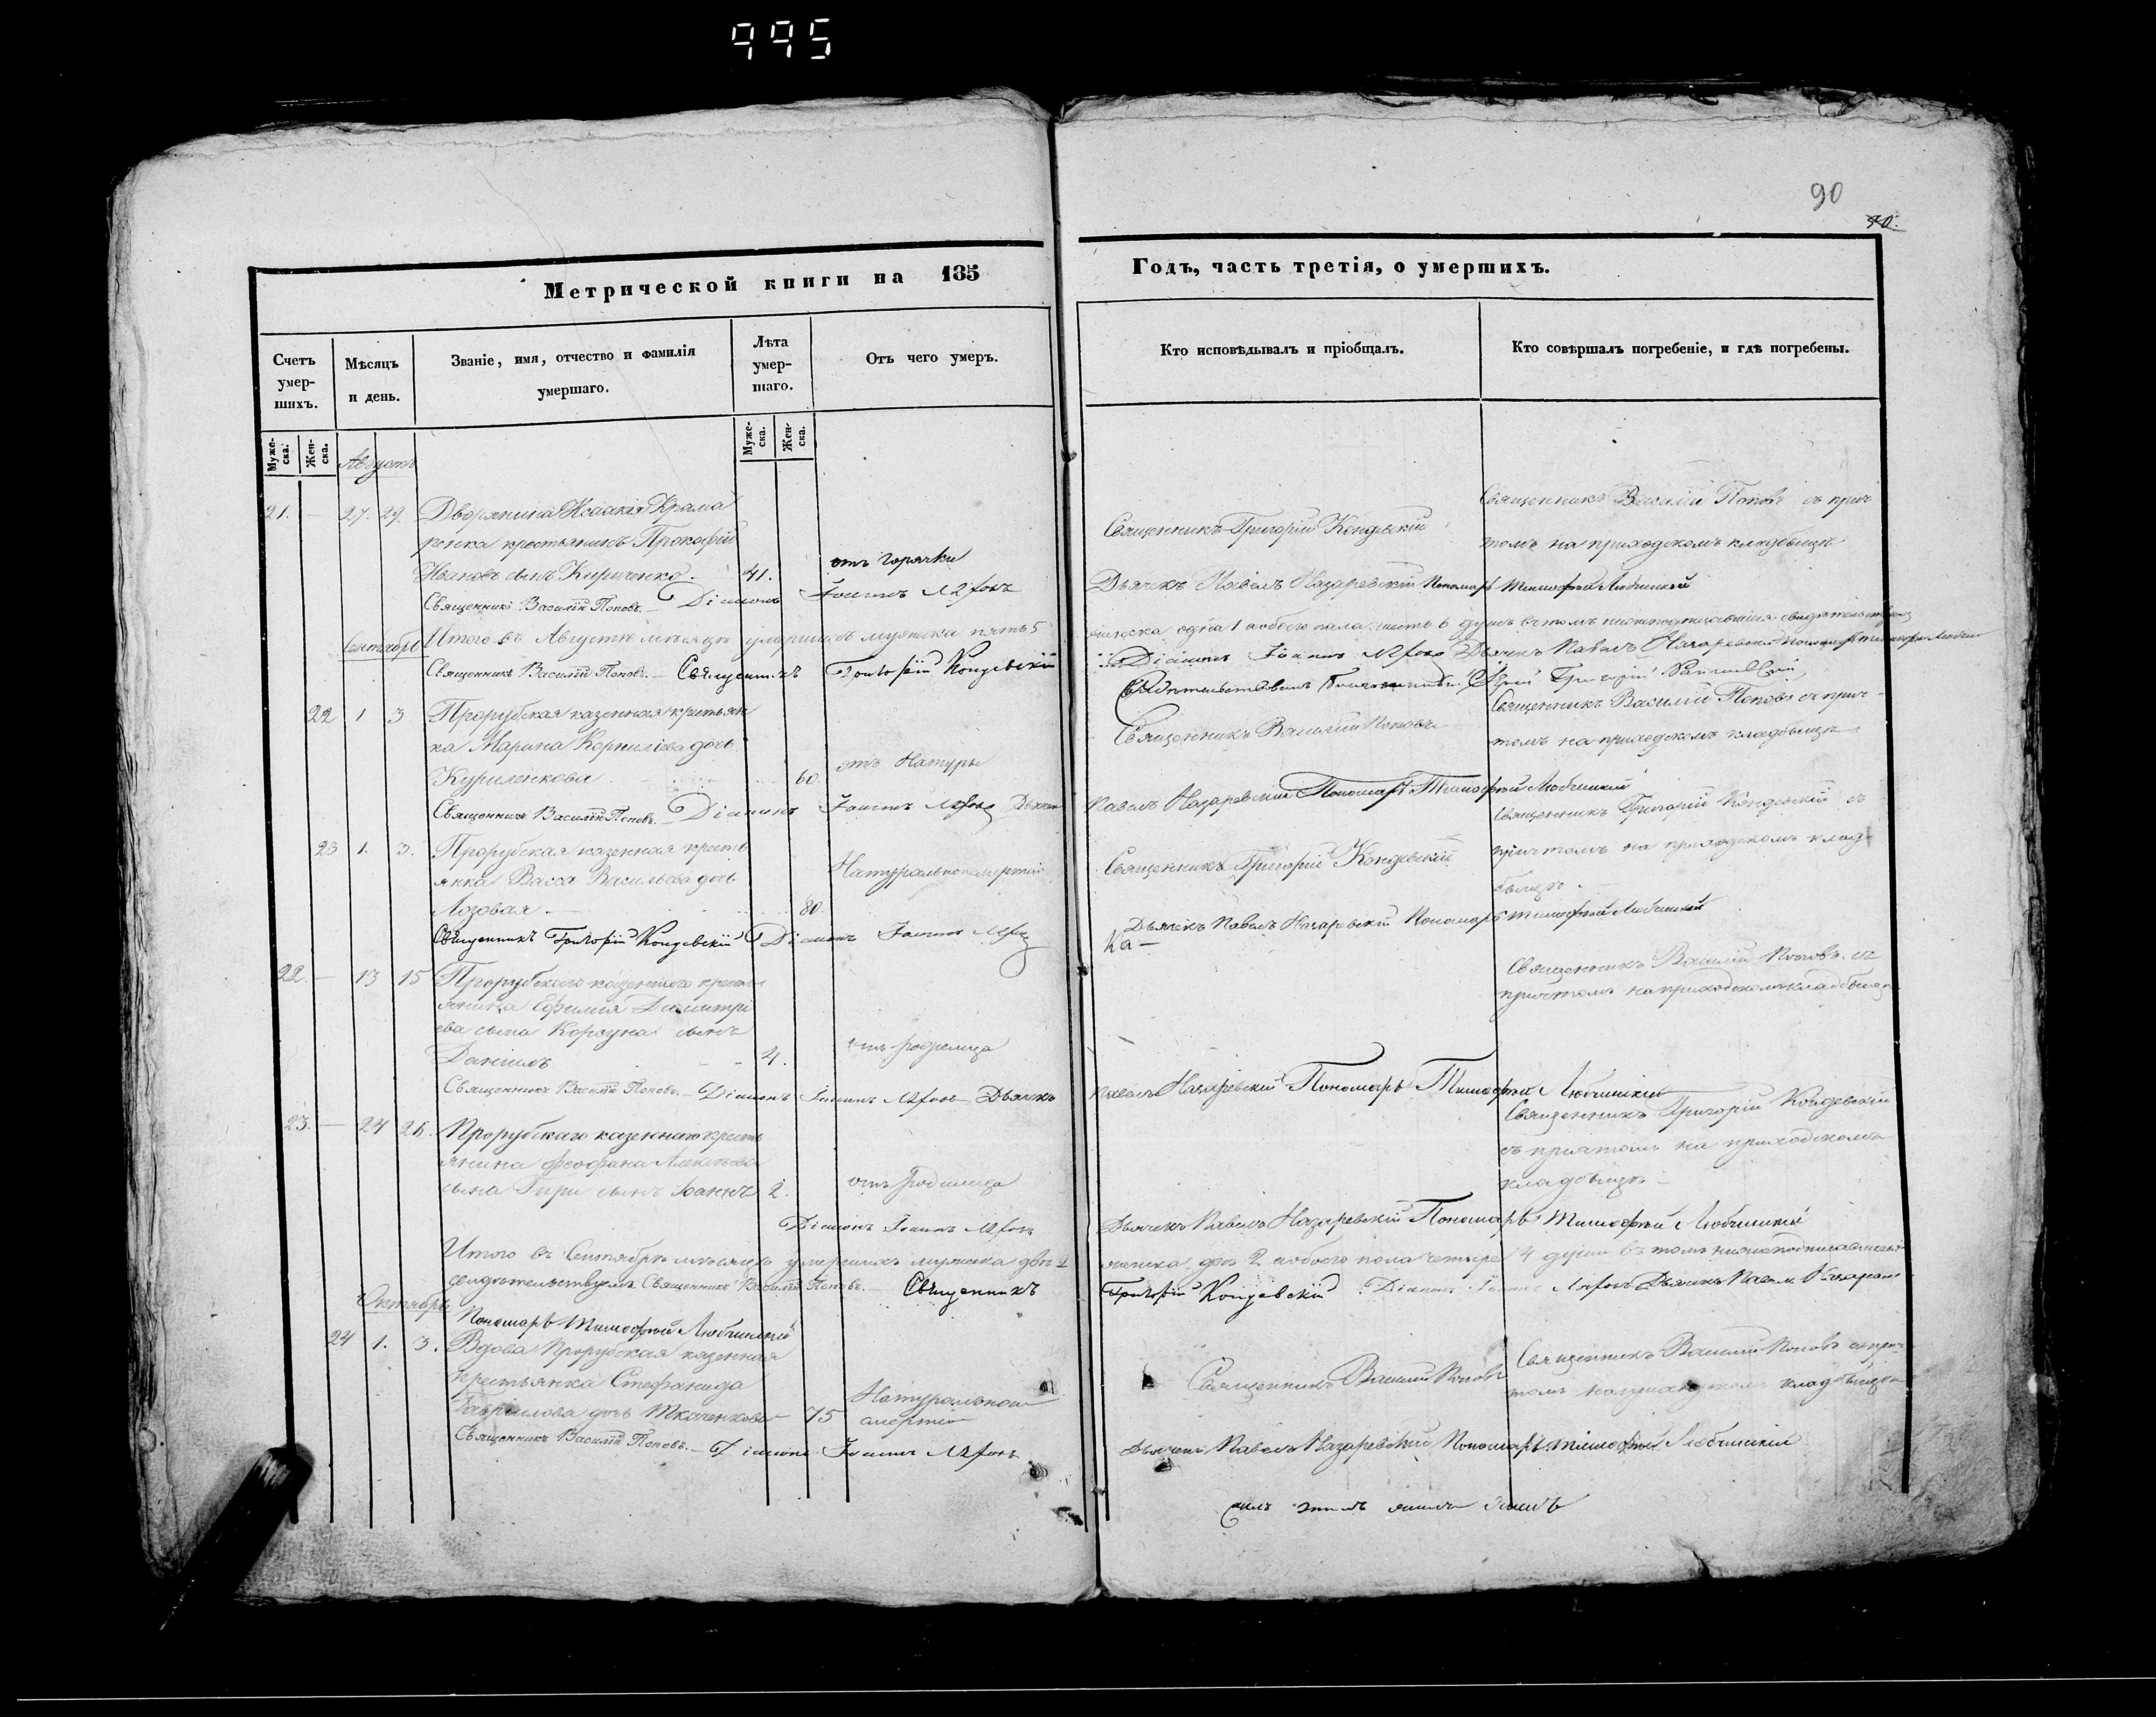 995
90
90.
Метрической книги на 185
Годъ, часть третія, о умершихъ.
Счетъ умер-шихъ.
Мѣсяцъ и день.
Званіе, имя, отчество и фамилія умершаго.
Лѣта умер-шаго.
Отъ чего умеръ.
Кто исповѣдывалъ и пріобщалъ.
Кто совѣршалъ погребеніе, и гдѣ погребены.
Муже-ска.
Жен-ска.
Муже-ска.
Жен-ска.
Августъ
21. — 27. 29. Дворянина Исаакія Крама
ренка крестьянинъ Прокофій
Ивановъ сынъ Кириченко. 41. отъ горячки
Священникъ Григорій Кондевскій
Священникъ Василій Поповъ съ прич
томъ на приходскомъ кладбищѣ
Священникъ Василій Поповъ. — Діаконъ Іоаннъ
Дьячекъ Павелъ Назаревскій Пономарь Тимофей Любчицкій
Сентябрь
Итого въ Августѣ мѣсяцѣ умершихъ мужеска пять 5
женска одна 1 обоего пола шесть 6 душъ въ томъ
Священникъ Василій Поповъ. — Священникъ Григорій Кондевскій
Діаконъ Іоаннъ Дьячекъ Павелъ Назаревскій
22 1 3 Прорубская казенная крестьян
ка Марина Корниліева дочь
Куриленкова 60. отъ Натуры
Священникъ Василій Поповъ
Священникъ Василій Поповъ съ прич-
томъ на приходскомъ кладбищѣ
Священникъ Василій Поповъ. — Діаконъ Іоаннъ
Павелъ Назаревскій Пономарь Тимофей Любчицкій
23 1. 3. Прорубская казенная кресть
янка Васса Васильева дочь
Лозовая. — 80. Натуральною смертію
Священникъ Григорій Кондевскій
Священникъ Григорій Кондевскій съ
причтомъ на приходскомъ клад-
бищѣ.
Священникъ Григорій Кондевскій Діаконъ Іоаннъ
Дьячекъ Павелъ Назаревскій Пономарь Тимофей Любчицкій
22. — 13 15 Прорубскаго казеннаго кресть
янина Ефимія Димитрі
ева сына Корсуна сынъ
Даніилъ 4. отъ родимца
Священникъ Василій Поповъ съ
причтомъ на приходскомъ кладбищѣ
Священникъ Василій Поповъ. — Діаконъ Іоаннъ Дьячекъ
Павелъ Назаревскій Пономарь Тимофей Любчицкій
23. — 24 26. Прорубскаго казеннаго кресть
янина Феофана Алексѣева
сына Гири сынъ Іоаннъ 2. отъ родимца
Священникъ Григорій Кондевскій
съ причтомъ на приходскомъ
кладбищѣ —
Діаконъ Іоаннъ
Дьячекъ Павелъ Назаревскій Пономарь Тимофей Любчицкій
Итого въ Сентябрѣ мѣсяцѣ умершихъ мужеска два 2
женска два 2 обоего пола четыре 4 души въ томъ
свидѣтельствуемъ Священникъ Василій Поповъ. — Священникъ
Григорій Кондевскій Діаконъ Іоаннъ Дьячекъ Павелъ
Октябрь
Пономарь Тимофей Любчицкій
24 1. 3. Вдова Прорубская казенная
крестьянка Стефанида
Гавріилова дочь Ткаченкова — 75 Натуральною
смертію
Священникъ Василій Поповъ
Священникъ Василій Поповъ съ прич-
томъ на приходскомъ кладбищѣ
Священникъ Василій Поповъ. — Діаконъ Іоаннъ
Дьячекъ Павелъ Назаревскій Пономарь Тимофей Любчицкій